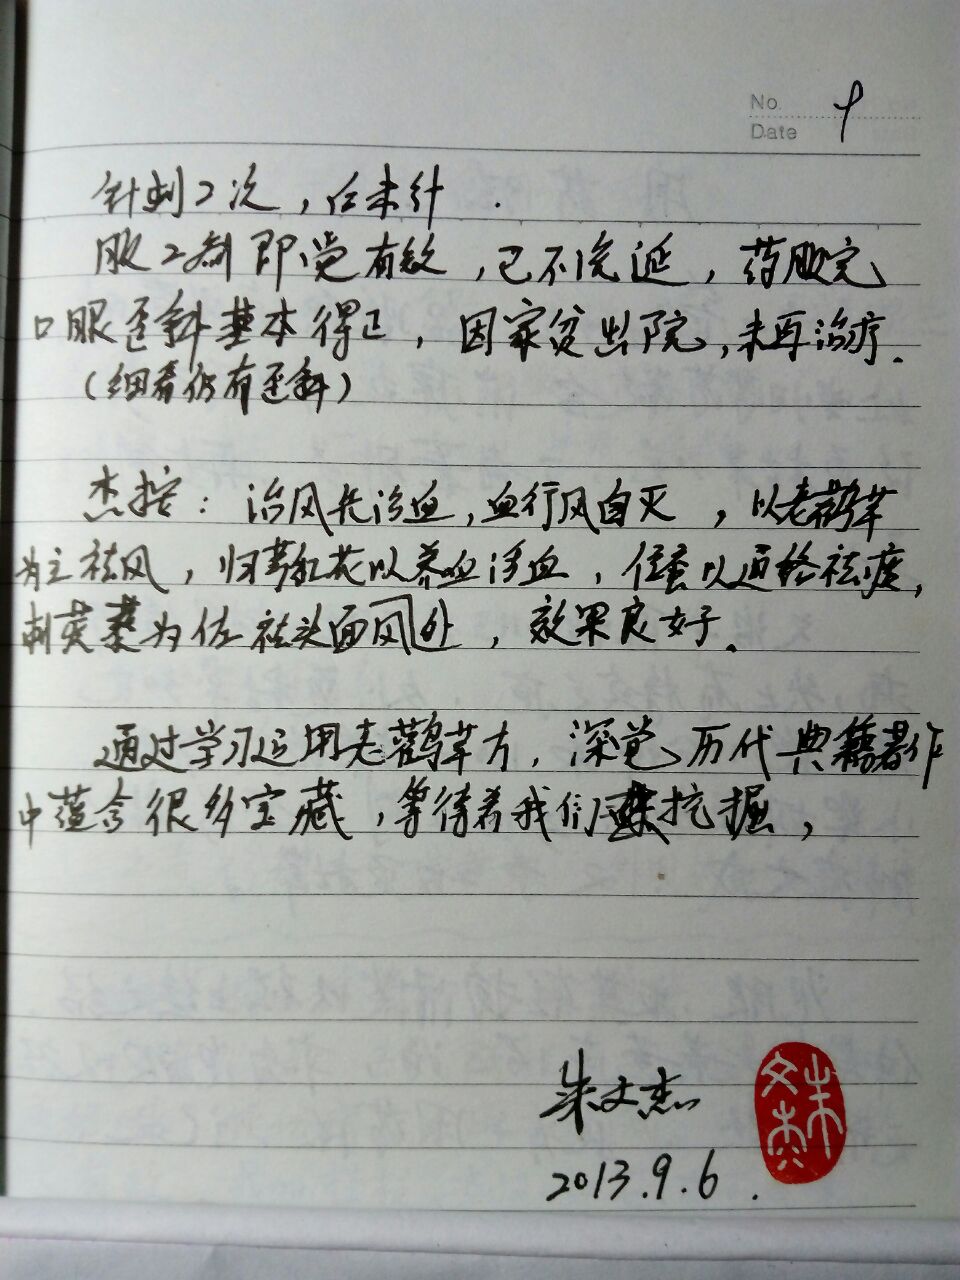 No. 9
Date
针刺2次，后未针．
服2剂即觉有效，已不流涎，药服完
口眼歪斜基本得正，因家贫出院，未再治疗．
（细看仍有歪斜）
杰按：治风先治血，血行风自灭，以老鹳草
为主祛风，归芍红花以养血活血，僵蚕以通络祛痰，
荆芥 为佐祛头面风 ，效果良好．
通过学习运用老鹳草方，深觉历代典籍著作
中蕴含很多宝藏，等待着我们 挖掘，
朱文杰
朱文杰
2013.9.6．